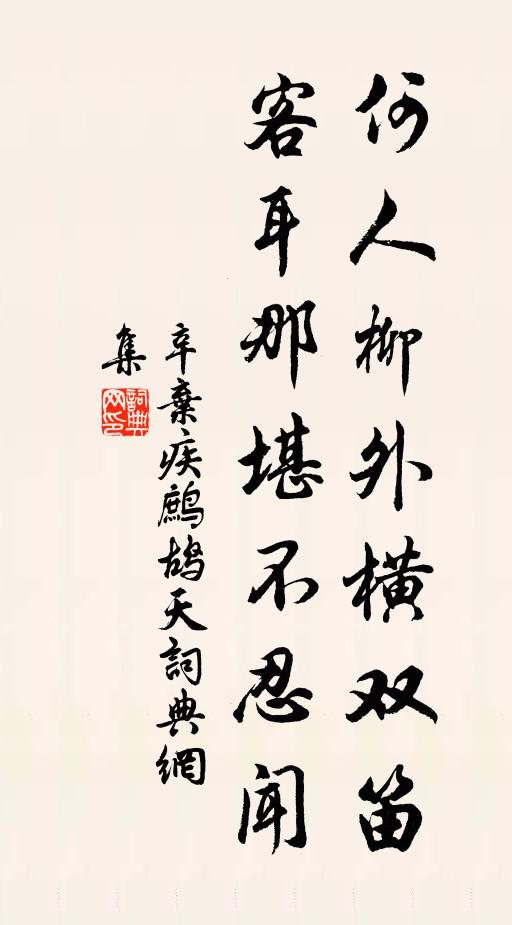 何人柳外横双笛
客耳那堪不忍闻
辛棄疾鷓鴣天詞典網
集
詞典
网印